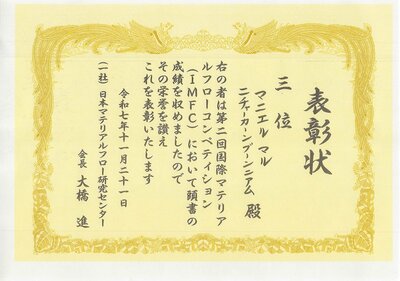 表彰状
三位
マニエル マル
ニチャーカーンプーンニアム 殿
右の者は第二回国際マテリア
ルフローコンペティション
(IMFC)において頭書の
成績を収めましたので
その栄誉を讃え
これを表彰いたします
令和七年十一月二十一日
(一社)日本マテリアルフロー研究センター
会長 大橋 進